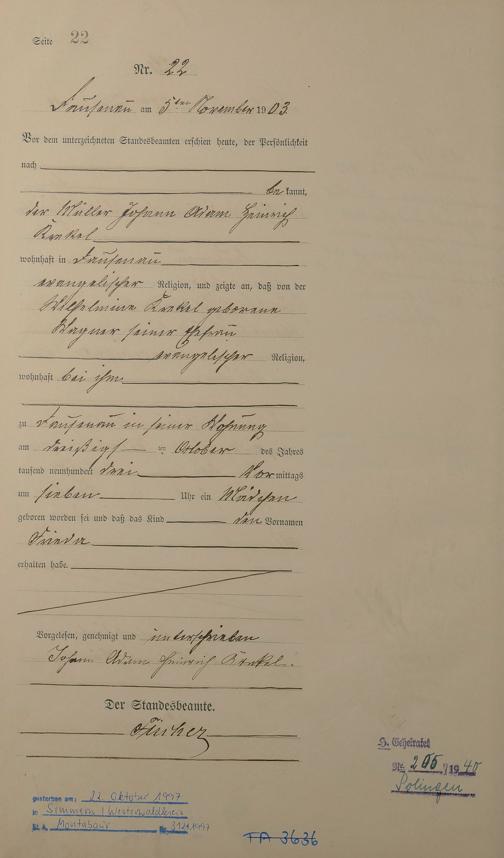 Seite 22
Nr. 22
Dausenau am 5ten November 1903.
Vor dem unterzeichneten Standesbeamten erschien heute, der Persönlichkeit
nach
bekannt,
der Müller Johann Adam Heinrich
Krekel
wohnhaft in Dausenau
evangelischer Religion, und zeigte an, daß von der
Wilhelmine Krekel geborene
Wagner seiner Ehefrau
evangelischer Religion,
wohnhaft bei ihm
zu Dausenau in seiner Wohnung
am dreißigst en October des Jahres
tausend neunhundert drei Vormittags
um sieben Uhr ein Mädchen
geboren worden sei und daß das Kind den Vornamen
Frieda
erhalten habe.
Vorgelesen, genehmigt und unterschrieben
Johann Adam Heinrich Krekel.
Der Standesbeamte.
gestorben am: 22. Oktober 1997
in Simmern / Westerwaldkreis
St. A. Montabaur Nr. 312/1997
TA 3636
Geheiratet
Nr. 1940
Solingen